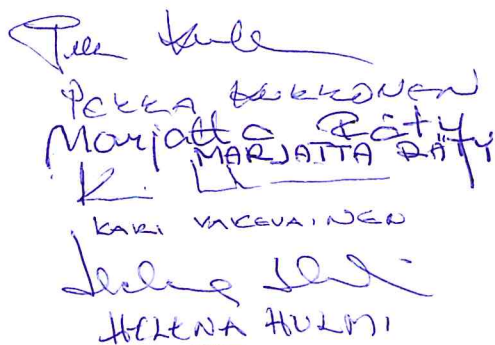 PEKKA KUKKONEN
Marjatta Räty
MARJATTA RÄTY
KARI VAKEVAINEN
HELENA HULMI